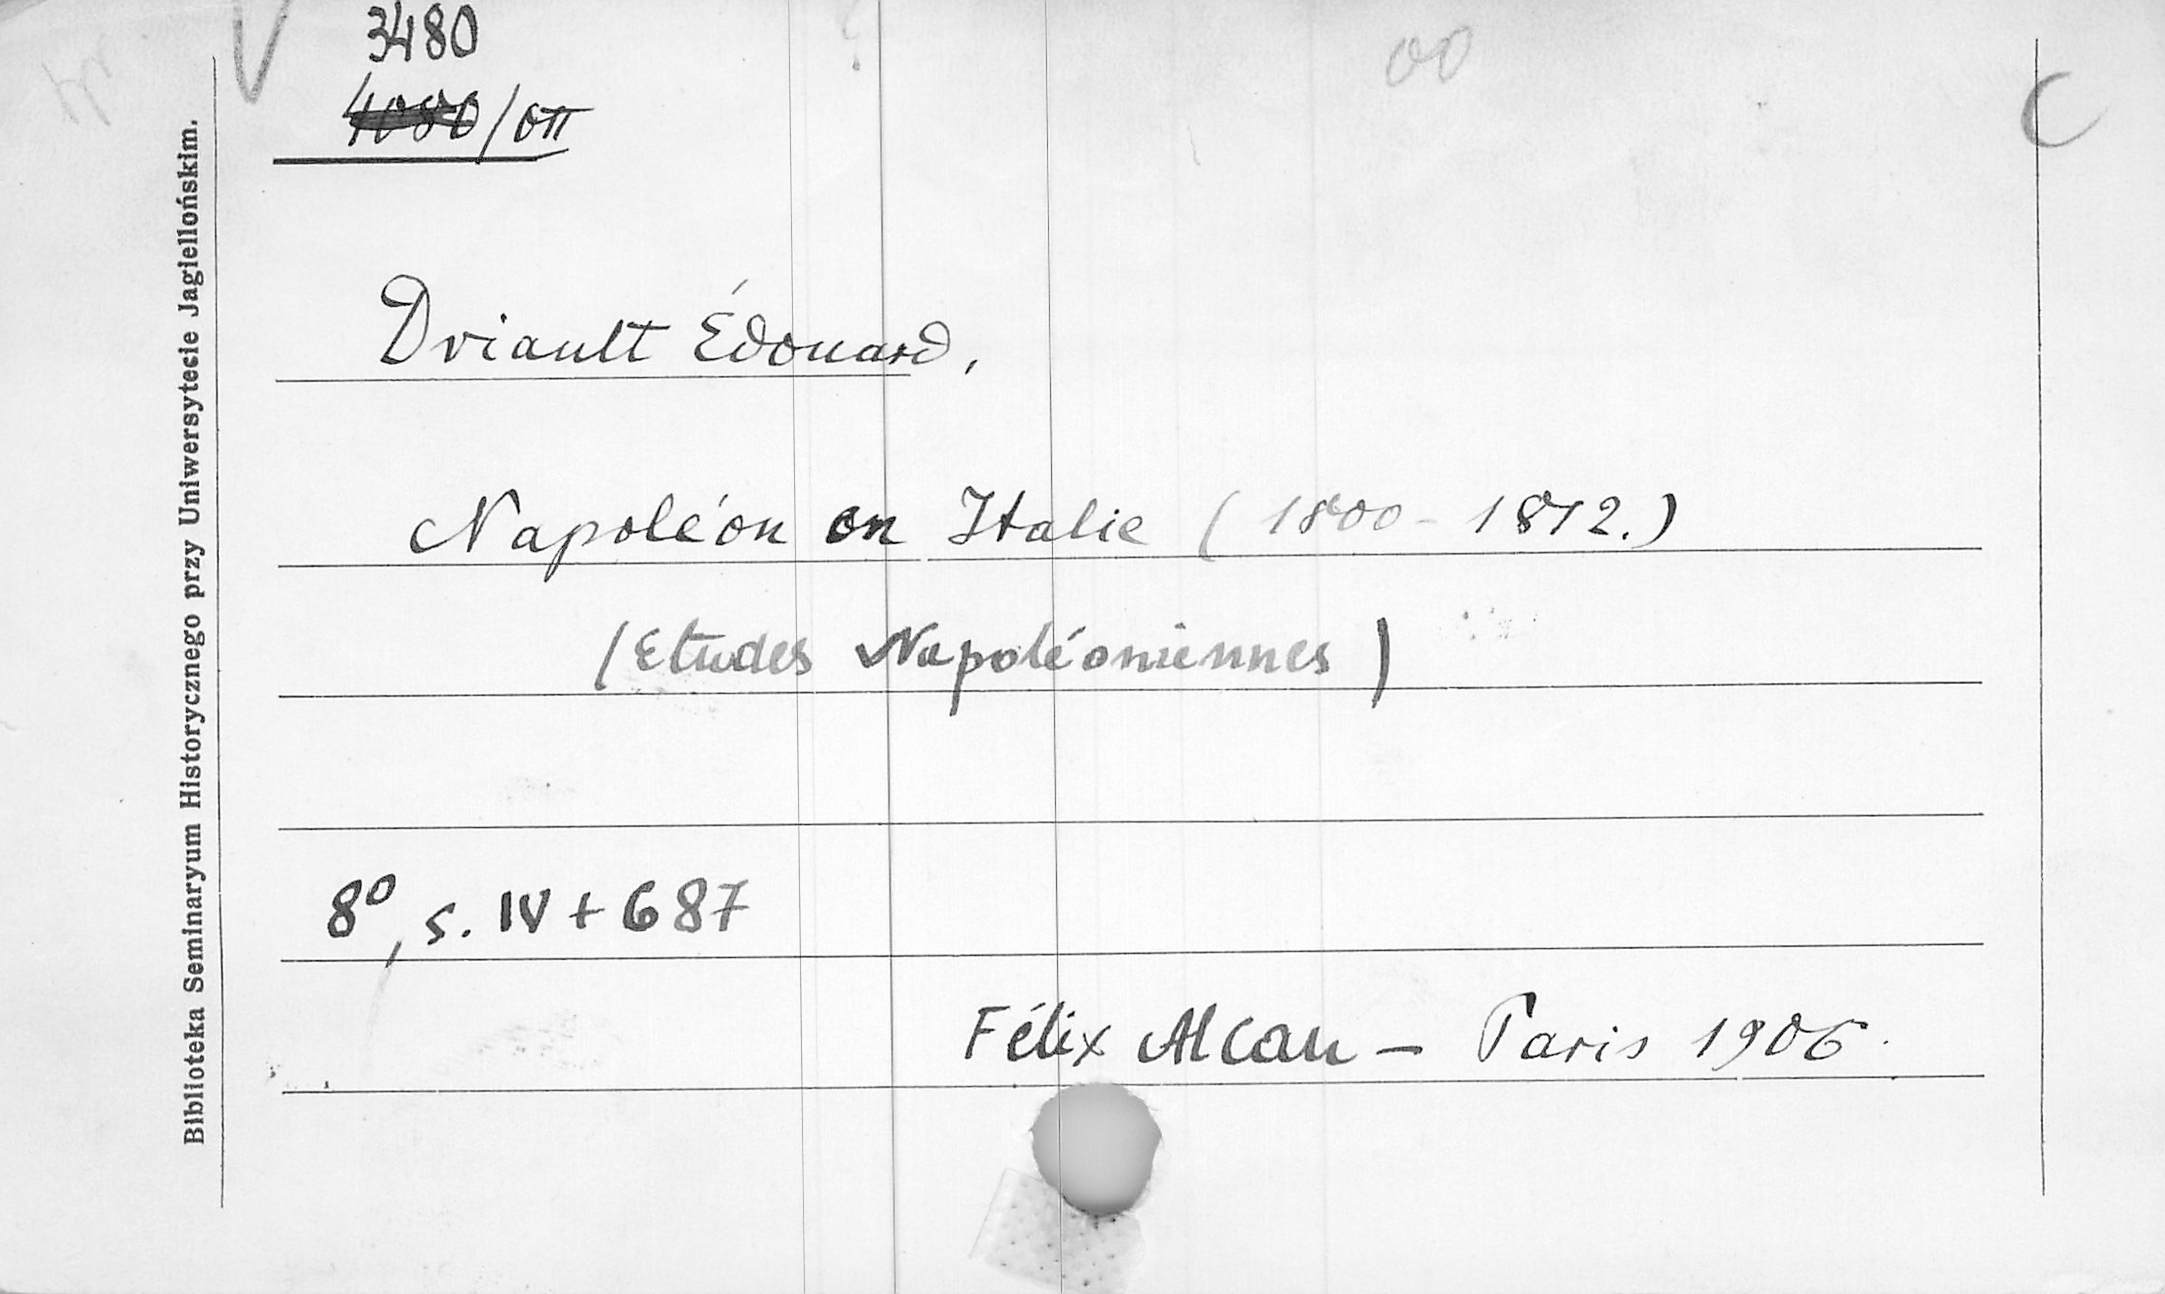 3480
4080/OII
Driault Édouard.
Napoléon en Italie (1800-1812.)
(Etudes Napoléoniennes)
8°, s. IV + 687
Félix Alcan — Paris 1906.
Biblioteka Seminaryum Historycznego przy Uniwersytecie Jagiellońskim.